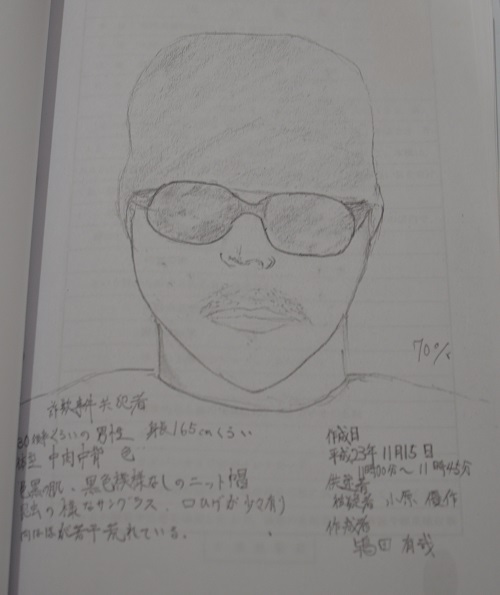 70%
詐欺事件共犯者
30歳くらいの男性 身長165cmくらい
体型 中肉中背 色
色黒の肌、黒色模様なしのニット帽
の様なサングラス、口ひげが少々有り
肌若干荒れている。
作成日
平成23年11月15日
11時00分〜11時45分
供述者
被疑者 小原 優作
作成者
嶋田 有哉